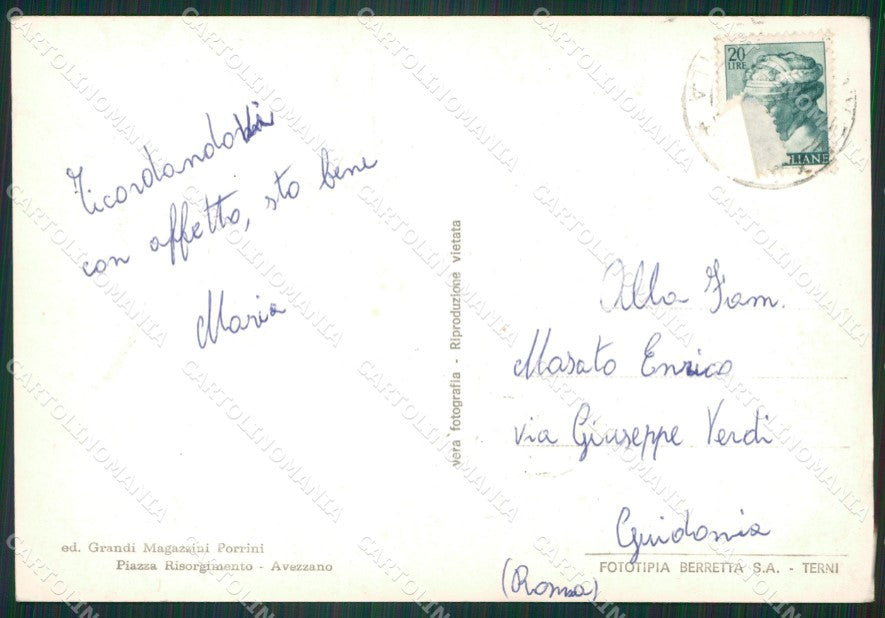 Ricordandovi
con affetto, sto bene
Maria
ed. Grandi Magazzini Porrini
Piazza Risorgimento - Avezzano
vera fotografia - Riproduzione vietata
20
LIRE
LIANE
Alla Fam.
Masato Enrico
via Giuseppe Verdi
Guidonia
(Roma)
FOTOTIPIA BERRETTA S.A. - TERNI
CARTOLINOMANIA